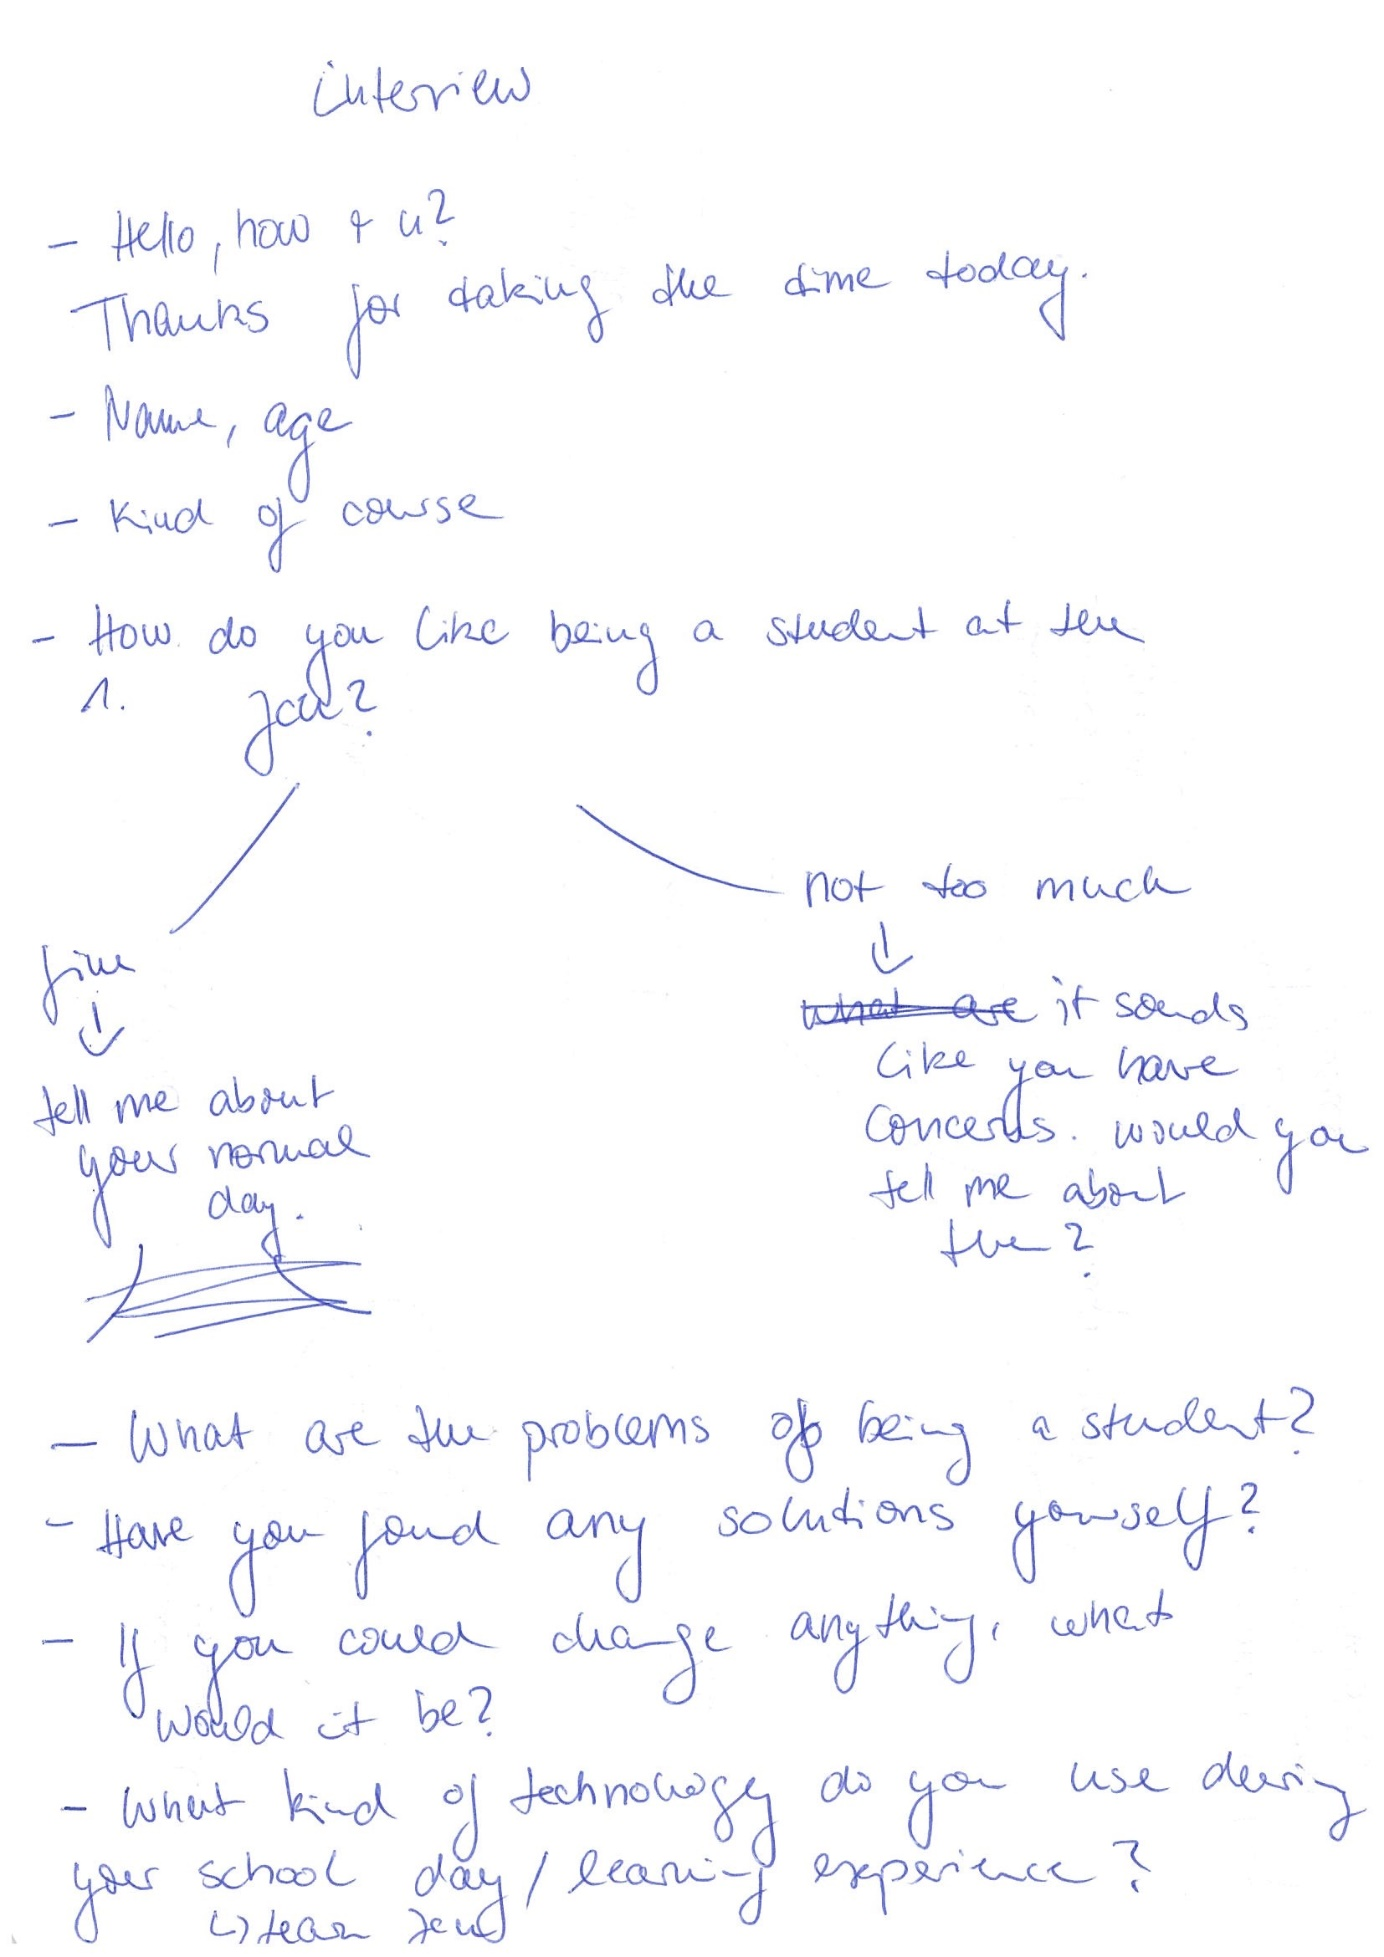 interview
- Hello, how r u?
Thanks for taking the time today.
- Name, age
- Kind of course
- How do you like being a student at the
1.
not too much
fine
↓
↓
it sounds
tell me about
like you have
your normal
concerns. would you
day.
tell me about
?
- What are the problems of being a student?
- Have you found any solutions yourself?
- If you could change anything, what
would it be?
- What kind of technology do you use during
your school day / learning experience?
↳ team